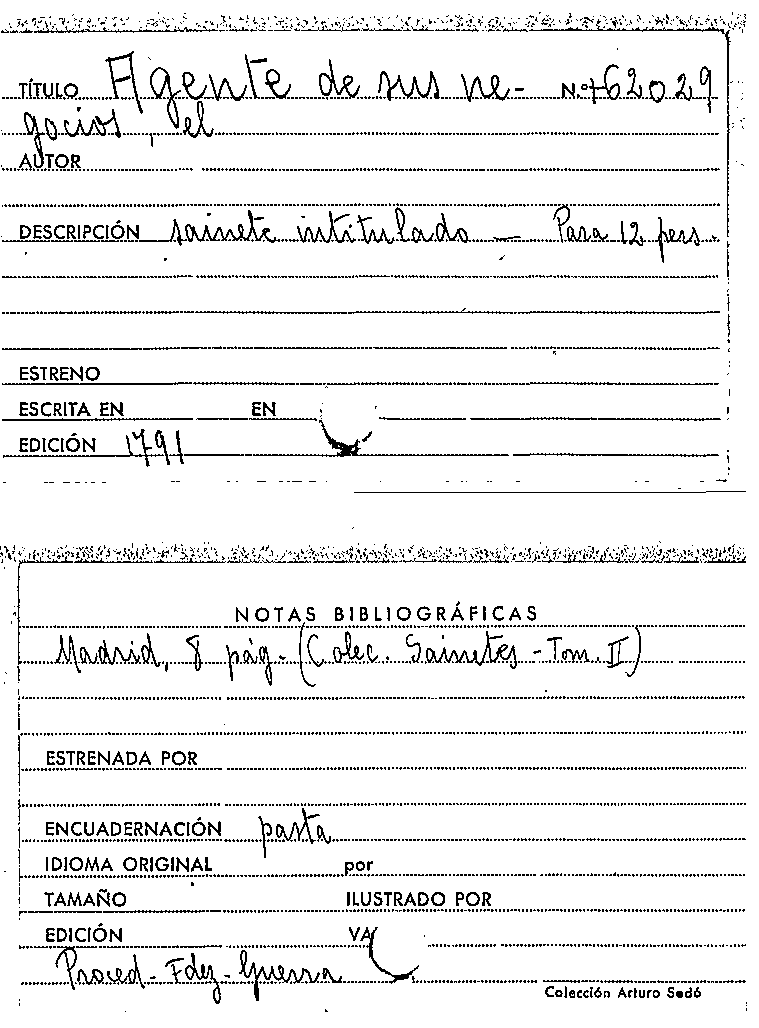 TÍTULO Agente de sus ne- N.º 62029
gocios, el
AUTOR
DESCRIPCIÓN sainete intitulado — Para 12 pers.
ESTRENO
ESCRITA EN EN
EDICIÓN 1791
NOTAS BIBLIOGRÁFICAS
Madrid, 8 pág. (Colec. Sainetes - Tom. II)
ESTRENADA POR
ENCUADERNACIÓN pasta
IDIOMA ORIGINAL por
TAMAÑO ILUSTRADO POR
EDICIÓN VA
Proced - Fdez - Guerra
Colección Arturo Sedó